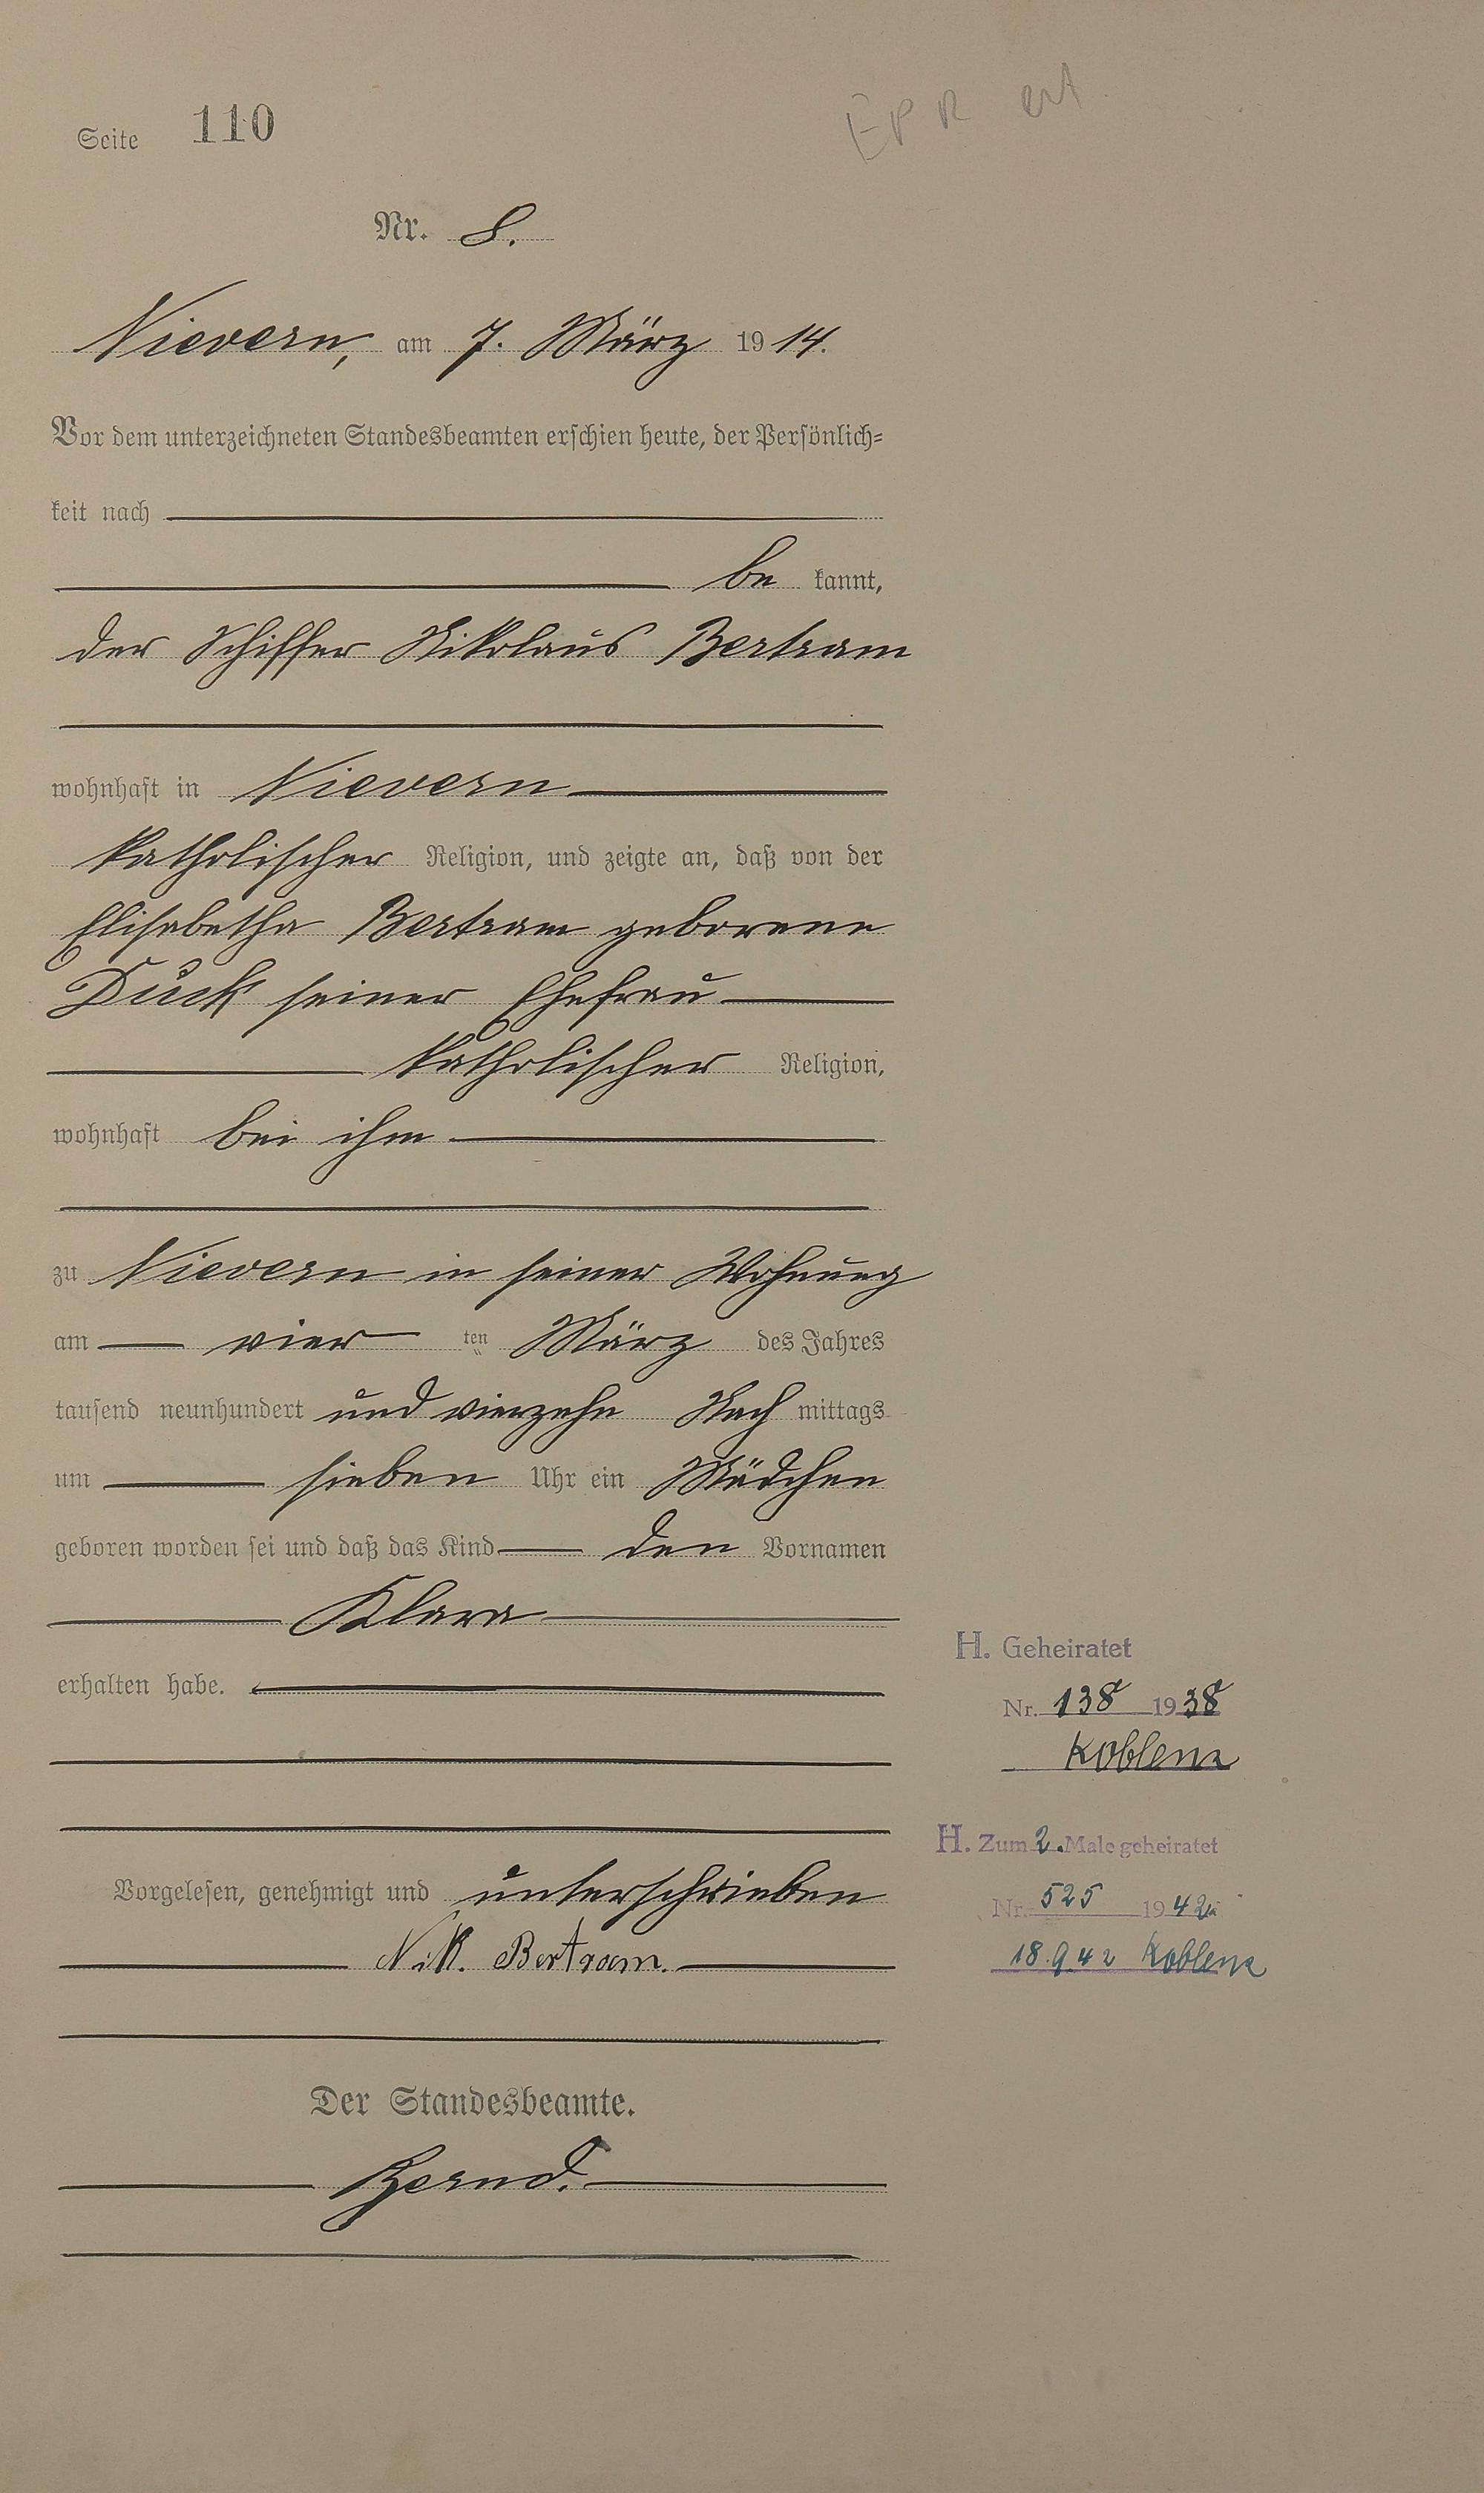 Seite 110
EPR
Nr. 8.
Nievern, am 7. März 1914.
Vor dem unterzeichneten Standesbeamten erschien heute, der Persönlich=
keit nach
be kannt,
der Schiffer Nikolaus Bertram
wohnhaft in Nievern
katholischer Religion, und zeigte an, daß von der
Elisabetha Bertram geborene
Duck seiner Ehefrau
katholischer Religion,
wohnhaft bei ihm
zu Nievern in seiner Wohnung
am vier ten März des Jahres
tausend neunhundert und vierzehn Nach mittags
um sieben Uhr ein Mädchen
geboren worden sei und daß das Kind den Vornamen
Klara
erhalten habe.
H. Geheiratet
Nr. 138 1938
Koblenz
Vorgelesen, genehmigt und unterschrieben
Nik. Bertram.
H. Zum 2. Male geheiratet
Nr. 525 1942
18.9.42 Koblenz
Der Standesbeamte.